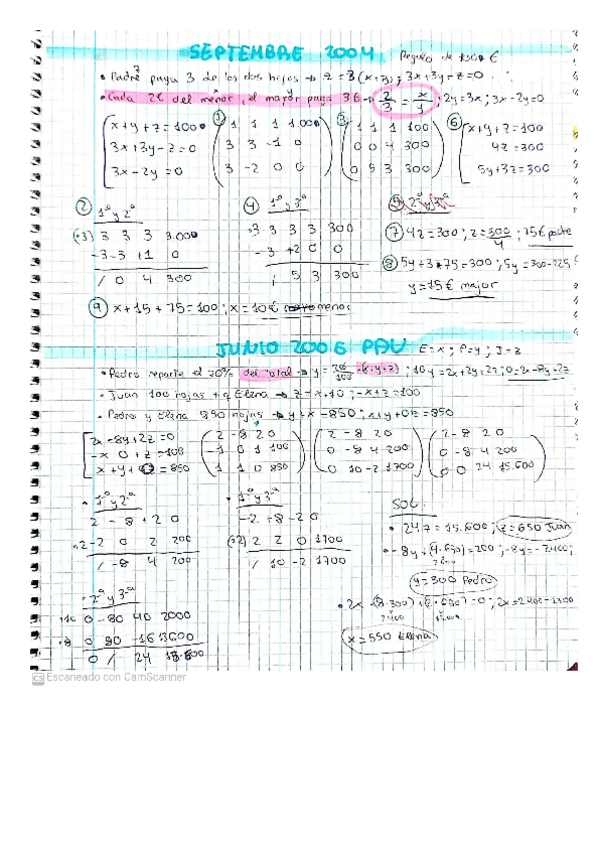 SEPTEMBRE 2004 Regalo de €
• Padre paga 3 de los dos hijos → z = 3(x+y); 3x+3y-z=0
• Cada 2€ del menor, el mayor paga 3€ → 2/3 = x/y; 2y=3x; 3x-2y=0
x+y+z=100 ① 1 1 1 1.000 ③ 1 1 1 100 ⑥ x+y+z=100
3x+3y-z=0 3 3 -1 0 0 0 4 300 4z=300
3x-2y=0 3 -2 0 0 0 5 3 300 5y+3z=300
② 1ª y 2ª ④ 1ª y 3ª
(·3) 3 3 3 3.000 ·3 3 3 3 300 ⑦ 4z=300; z=300/4; 75€ padre
-3 -3 +1 0 -3 +2 0 0 ⑧ 5y+3·75=300; 5y=300-225
/ 0 4 300 / 5 3 300 y=15€ major
⑨ x+15+75=100; x=10€ menor
JUNIO 2006 PAU E=x; P=y; J=z
• Pedro reparte el 20% del total → y = 20/100 ; 10y=2x+2y+2z; 0=2x-8y+2z
• Juan 100 hojas + q Elena → ; -x+z=100
• Pedro y Elena 850 hojas → y+x=850; x+y+0z=850
2x-8y+2z=0 2 -8 2 0 2 -8 2 0 2 -8 2 0
-x 0 +z=100 -1 0 1 100 0 -8 4 200 0 -8 4 200
x+y+ =850 1 1 0 850 0 10 -2 1700 0 0 24 15.600
• 1ª y 2ª • 1ª y 3ª SOL:
2 -8 +2 0 -2 +8 -2 0 • 24z=15.600; z=650 Juan
·2 -2 0 2 200 (·2) 2 2 0 1700 • -8y+(4·650)=200; -8y=-2400;
/ -8 4 200 / 10 -2 1700 y=300 Pedro
• 2ª y 3ª
·10 0 -80 40 2000
·8 0 80 -16 13600 x=550 Elena
0 / 24 15.600
CS Escaneado con CamScanner